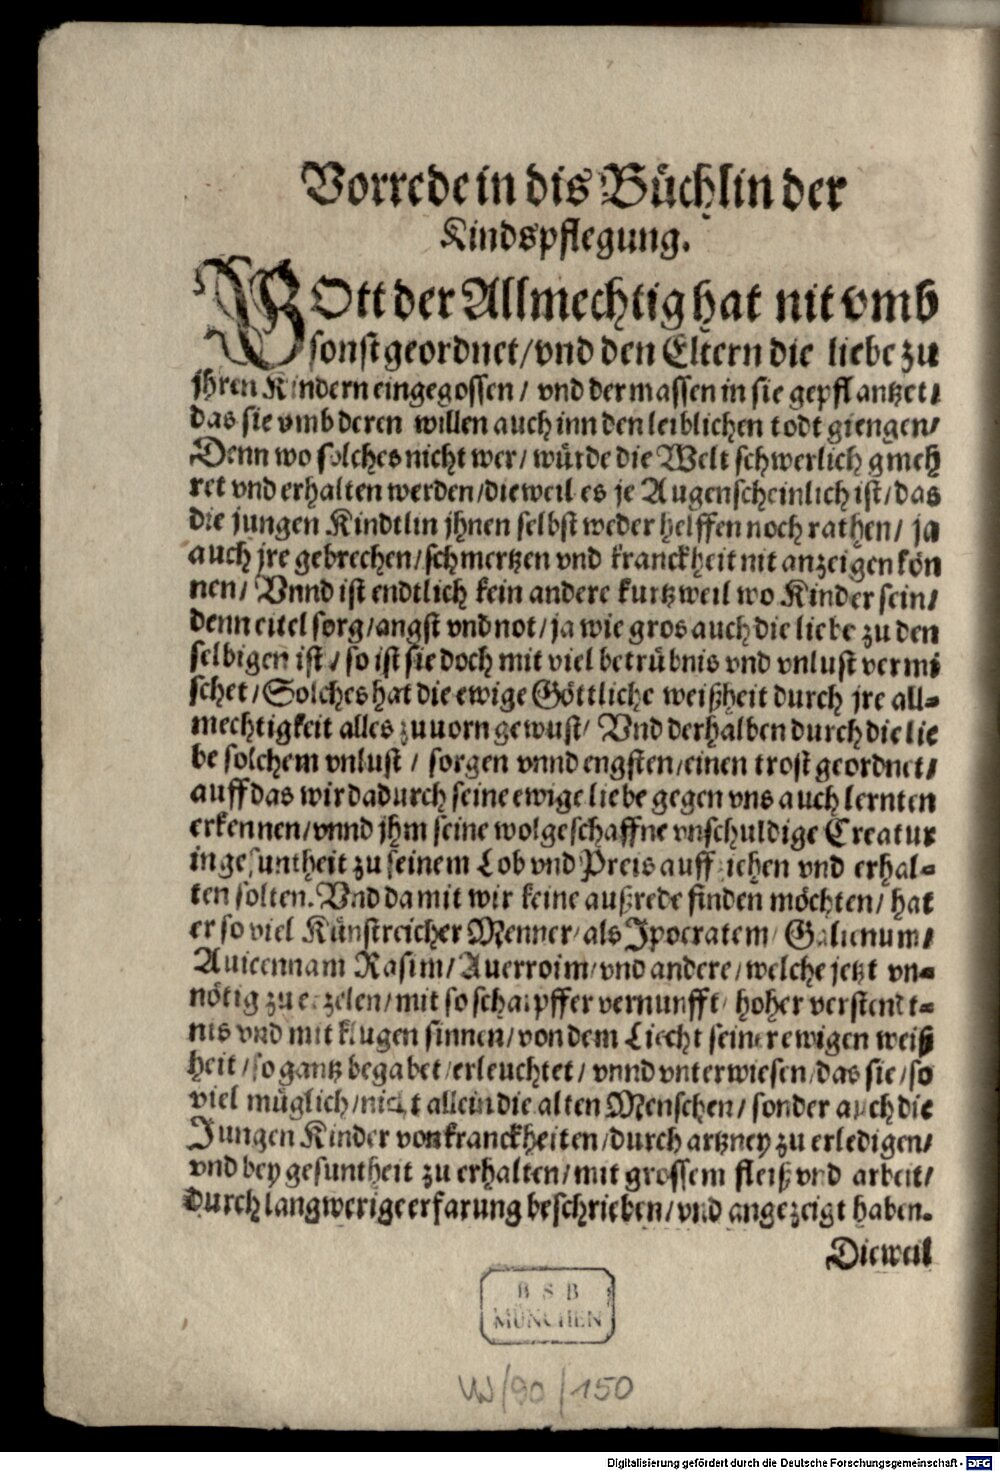 Vorrede in dis Büchlin der
Kindspflegung.
GOtt der Allmechtig hat nit vmb
sonst geordnet/ vnd den Eltern die liebe zu
jhren Kindern eingegossen/ vnd dermassen in sie gepflantzet/
das sie vmb deren willen auch inn den leiblichen todt giengen/
Denn wo solches nicht wer/ würde die Welt schwerlich gmeh
ret vnd erhalten werden/ dieweil es je Augenscheinlich ist/ das
die jungen Kindtlin jhnen selbst weder helffen noch rathen/ ja
auch jre gebrechen/ schmertzen vnd kranckheit nit anzeigen kön
nen/ Vnnd ist endtlich kein andere kurtzweil wo Kinder sein/
denn eitel sorg/ angst vnd not/ ja wie gros auch die liebe zu den
selbigen ist/ so ist sie doch mit viel betrübnis vnd vnlust vermi
schet/ Solches hat die ewige Göttliche weißheit durch jre all-
mechtigkeit alles zuuorn gewust/ Vnd derhalben durch die lie
be solchem vnlust/ sorgen vnnd engsten/ einen trost geordnet/
auff das wir dadurch seine ewige liebe gegen vns auch lernten
erkennen/ vnnd jhm seine wolgeschaffne vnschuldige Creatur
in gesuntheit zu seinem Lob vnd Preis auffziehen vnd erhal-
ten solten. Vnd damit wir keine außrede finden möchten/ hat
er so viel Künstreicher Menner/ als Ipocratem/ Galienum/
Auicennam Rasim/ Auerroim/ vnd andere/ welche jetzt vn-
nötig zu erzelen/ mit so scharpffer vernunfft/ hoher verstendt-
nis vnd mit klugen sinnen/ von dem Liecht seiner ewigen weiß
heit/ so gantz begabet/ erleuchtet/ vnnd vnterwiesen/ das sie/ so
viel müglich/ nicht allein die alten Menschen/ sonder auch die
Jungen Kinder von kranckheiten/ durch artzney zu erledigen/
vnd bey gesuntheit zu erhalten/ mit grossem fleiß vnd arbeit/
durch langwerige erfarung beschrieben/ vnd angezeigt haben.
Dieweil
B S B
MÜNCHEN
W/90/150
Digitalisierung gefördert durch die Deutsche Forschungsgemeinschaft - DFG